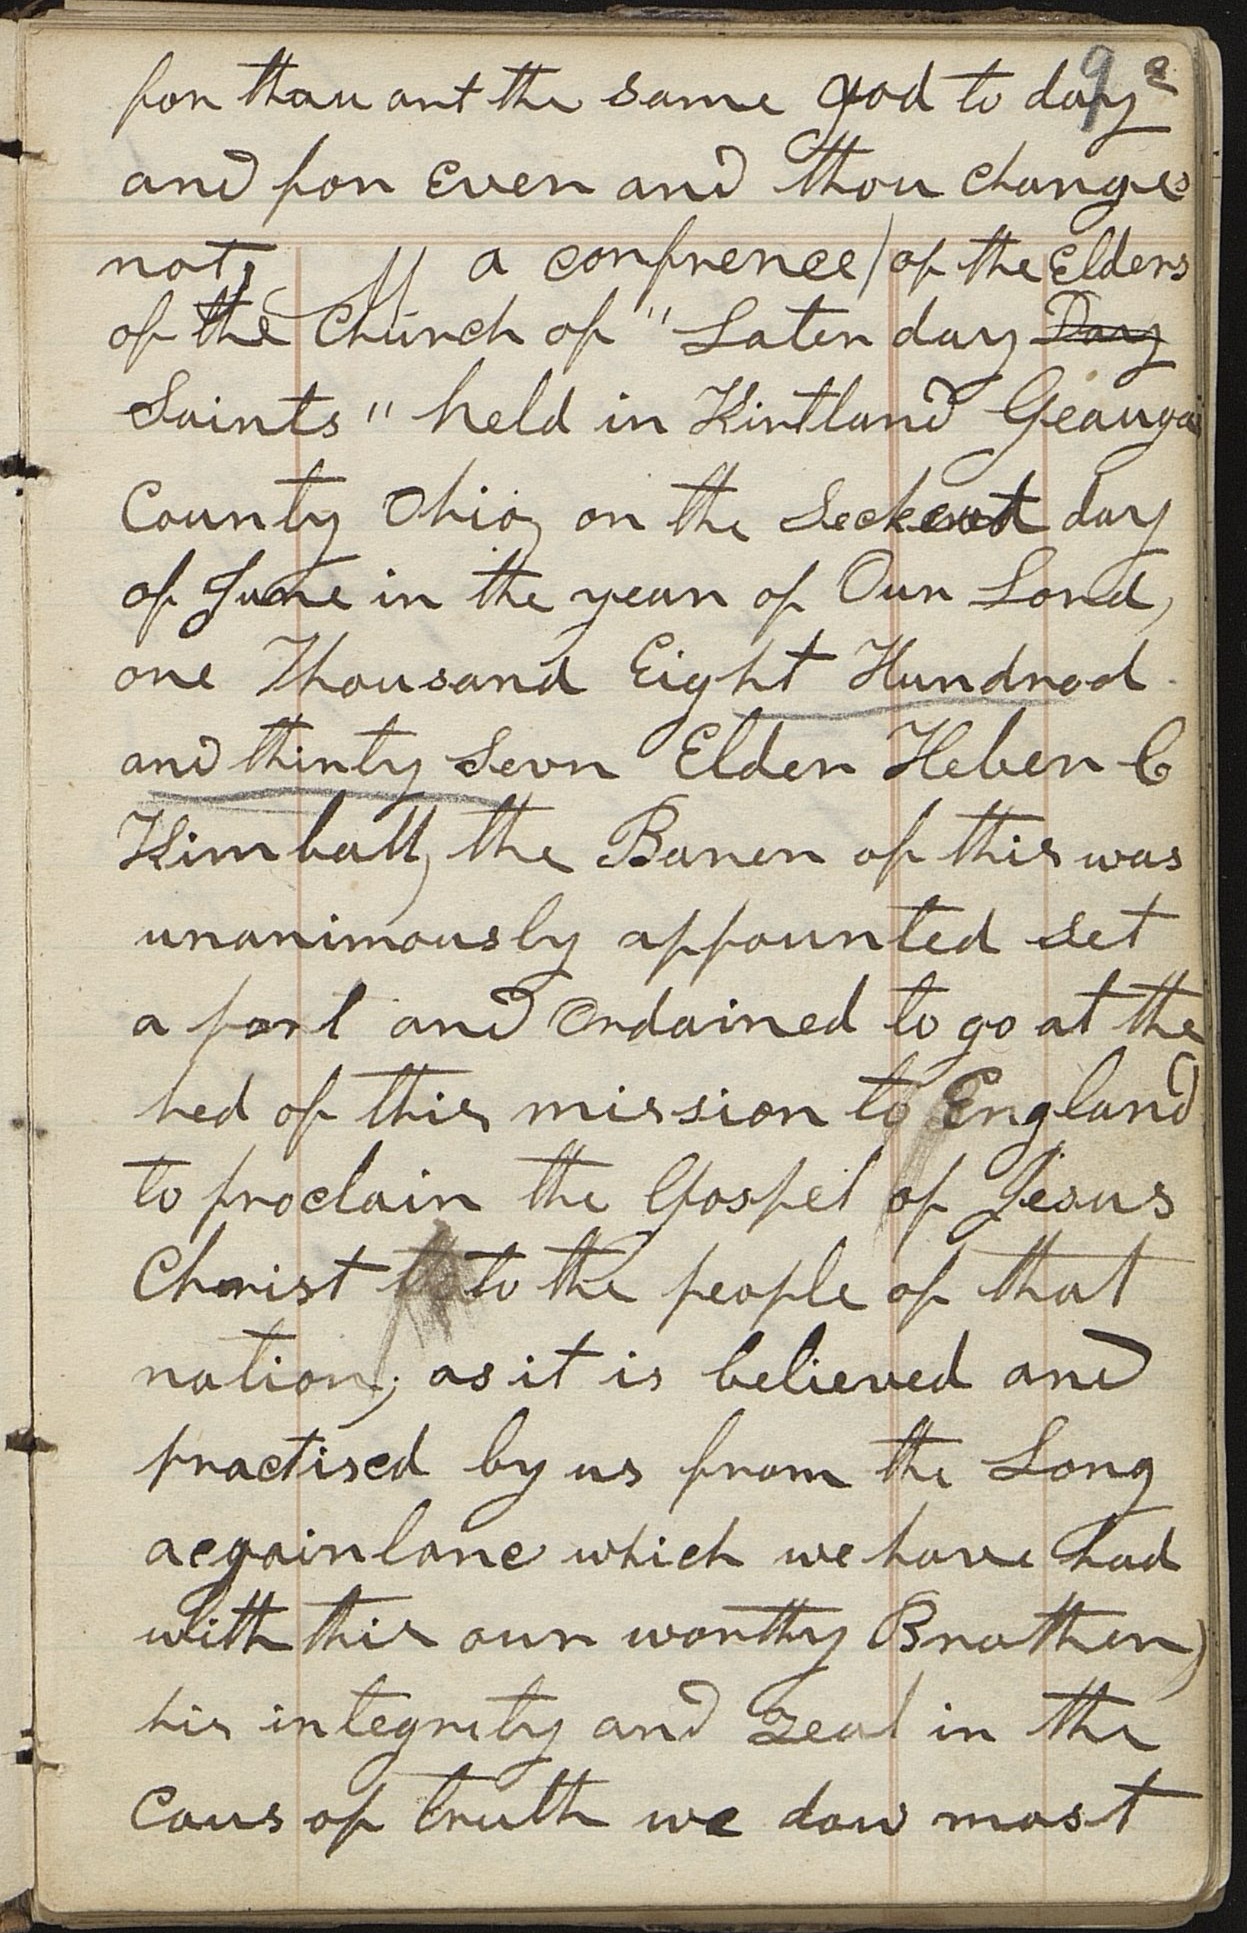 9
for thau art the same god to day
and for Ever and thou changes
not, a confrence) of the Elders
of the Church of "Later day Day
Saints" held in Kirtland Geauga
County Ohio, on the day
of June in the year of Our Lord,
one Thousand Eight Hundred
and thirty Sevn Elder Heber C
Kimball, the Barer of this was
unanimously appounted set
a part and Ordained to go at the
hed of this mission to England
to proclain the Gospel of Jesus
Christ to the people of that
nation, as it is believed and
practised by us from the Long
acqaintanc which we have had
with this our worthy Brother,
his integrity and zeal in the
Caus of truth we dow most